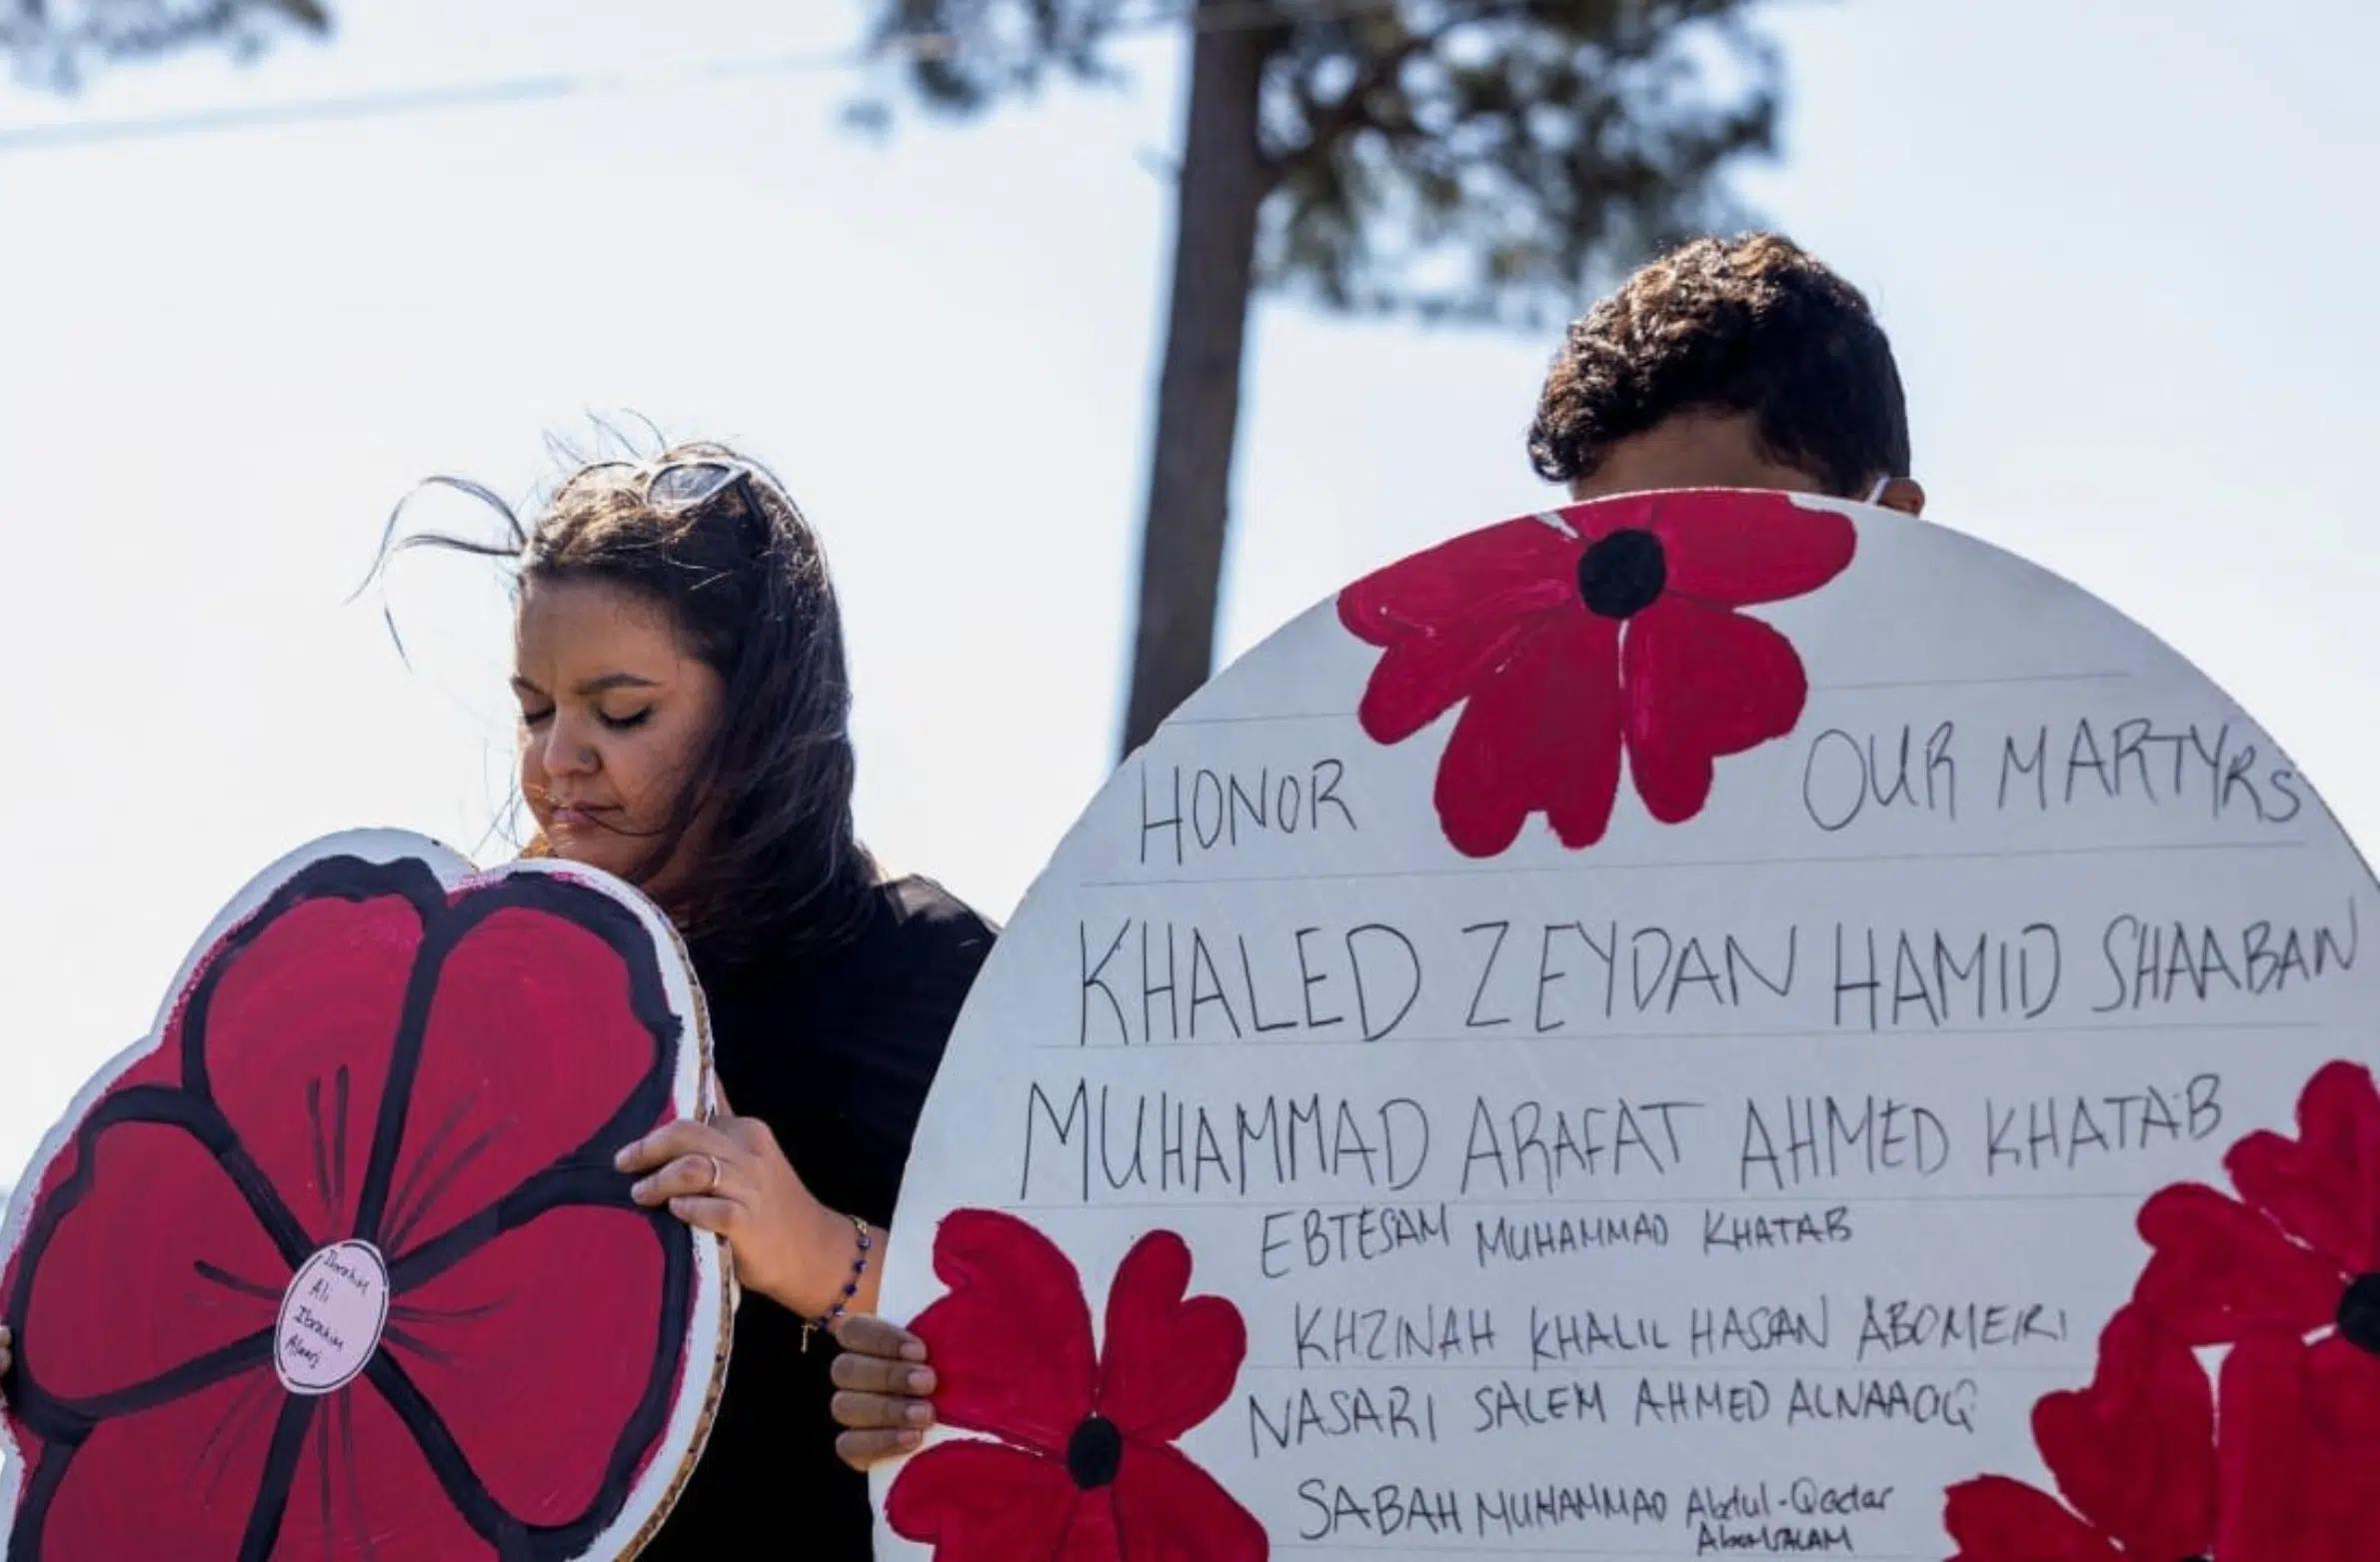 HONOR OUR MARTYRS
KHALED ZEYDAN HAMID SHAABAN
MUHAMMAD ARAFAT AHMED KHATAB
EBTESAM MUHAMMAD KHATAB
KHZINAH KHALIL HASSAN ABOMEIRI
NASARI SALEM AHMED ALNAAOQ
SABAH MUHAMMAD Abdul-Qadar
Ibrahim
Ali
Ibrahim